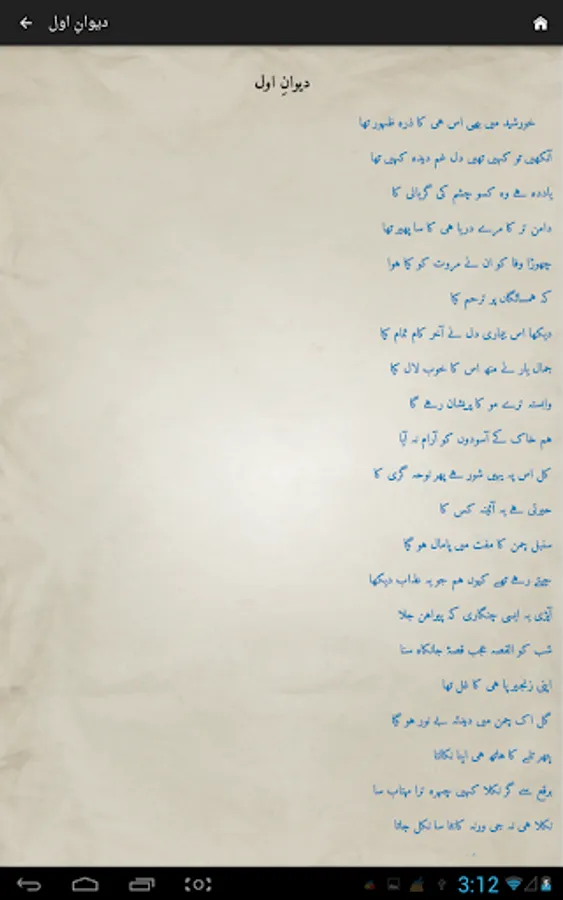 دیوانِ اول
دیوانِ اول
خورشید میں بھی اس ہی کا ذرہ ظہور تھا
آنکھیں تو کہیں تھیں دل غم دیدہ کہیں تھا
یاددہ ہے وہ کسو چشم کی گریانی کا
دامن تر کا مرے دریا ہی کا سا پھیر تھا
چھوڑا وفا کو ان نے مروت کو کیا ہوا
کہ ہمسائگاں پر ترحم کیا
دیکھا اس بیماری دل نے آخر کام تمام کیا
جمال یار نے منھ اس کا خوب لال کیا
وابستہ ترے مو کا پریشان رہے گا
ہم خاک کے آسودوں کو آرام نہ آیا
کل اس پہ یہیں شور ہے پھر نوحہ گری کا
حیرتی ہے یہ آئینہ کس کا
سنبل چمن کا مفت میں پامال ہو گیا
جیتے رہے تھے کیوں ہم جو یہ عذاب دیکھا
آپڑی یہ ایسی چنگاری کہ پیراہن جلا
شب کو القصہ عجب قصۂ جانکاہ سنا
اپنی زنجیر پا ہی کا غل تھا
گل اک چمن میں دیدئہ بے نور ہو گیا
پتھر تلے کا ہاتھ ہی اپنا نکالتا
برقع سے گر نکلا کہیں چہرہ ترا مہتاب سا
نکلا ہی نہ جی ورنہ کانٹا سا نکل جاتا
3:12